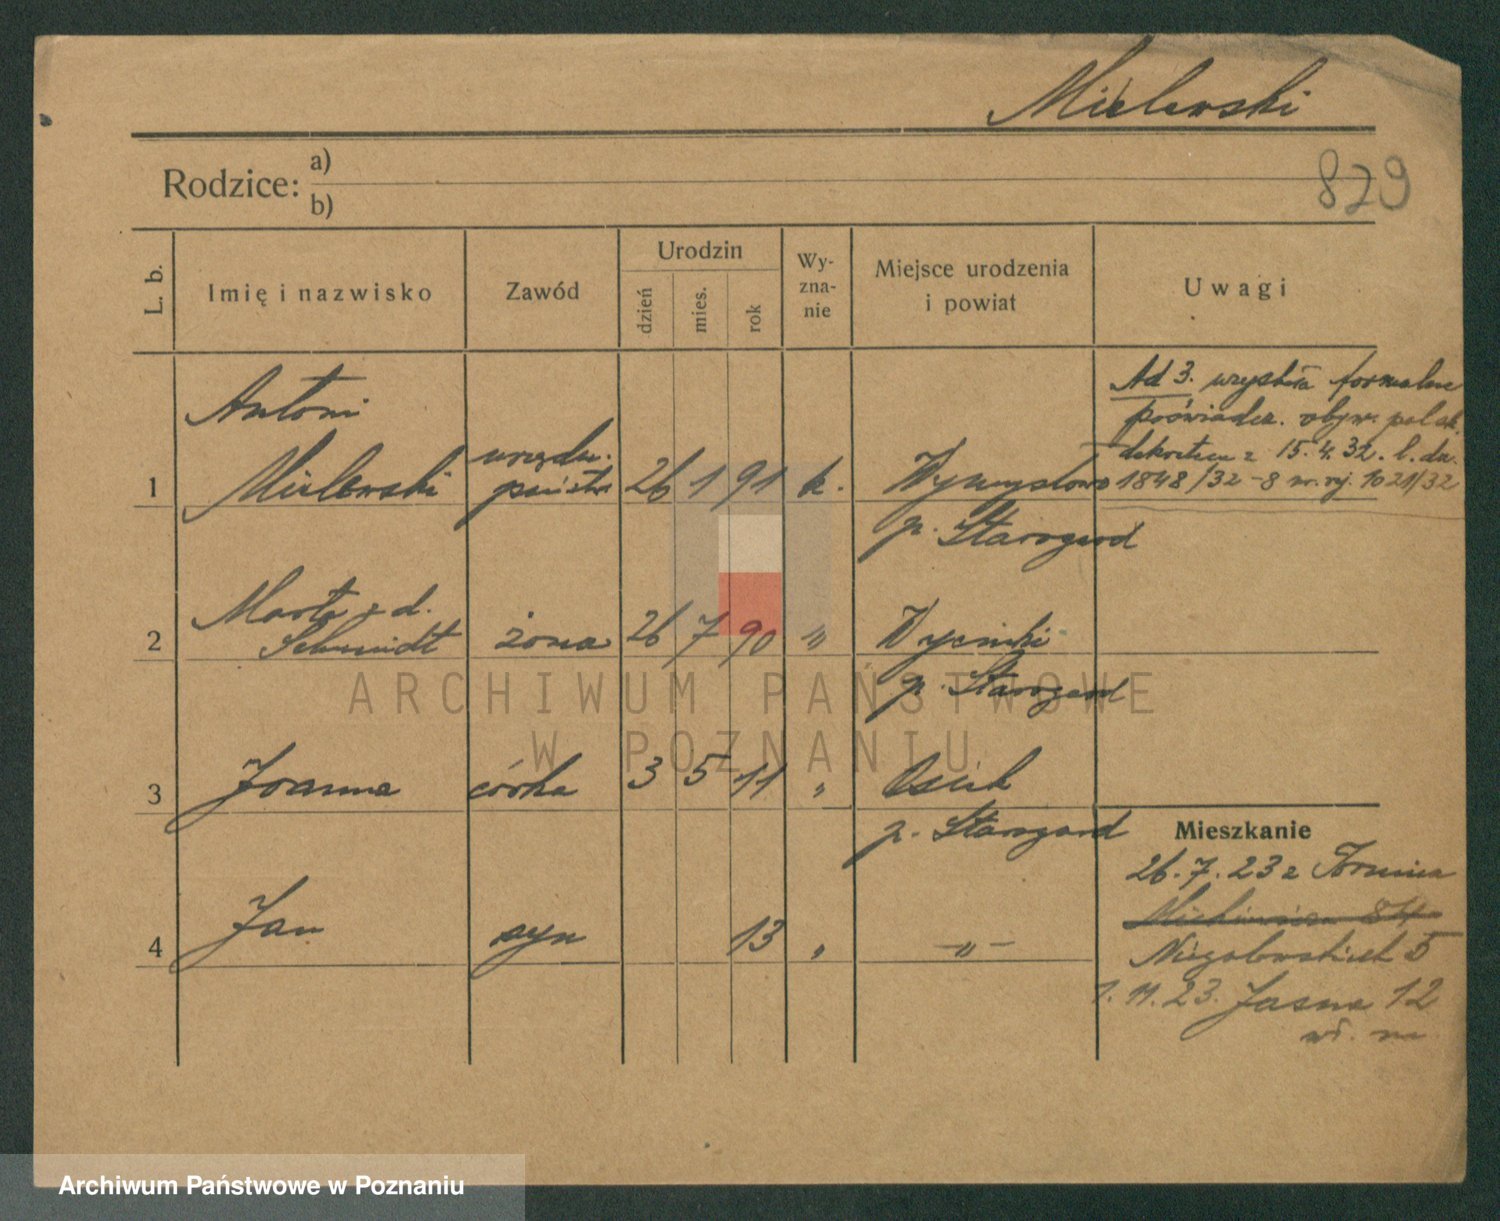 Mielewski
829
Rodzice: a)
b)
L. b.
Imię i nazwisko
Zawód
Urodzin
dzień
mies.
rok
Wy-
zna-
nie
Miejsce urodzenia
i powiat
Uwagi
Ad 3. uzyskała formalne
poświadcz. obyw. polsk.
dekretem z 15.4.32. l. dz.
1848/32-8 nr. rej. 1021/32
Antoni
1 Mielewski urzędn. państw. 26 1 91 k. Wymysłowo
p. Starogard
2 Marta z d.
Schmidt żona 26 7 90 " Wycinki
p. Starogard
3 Joanna córka 3 5 11 " Osiek
p. Starogard
4 Jan syn 13 " -"-
Mieszkanie
26.7.23 z Torunia
84
Niegolewskich 5
1.11.23. Jasna 12
ARCHIWUM PAŃSTWOWE
W POZNANIU
Archiwum Państwowe w Poznaniu